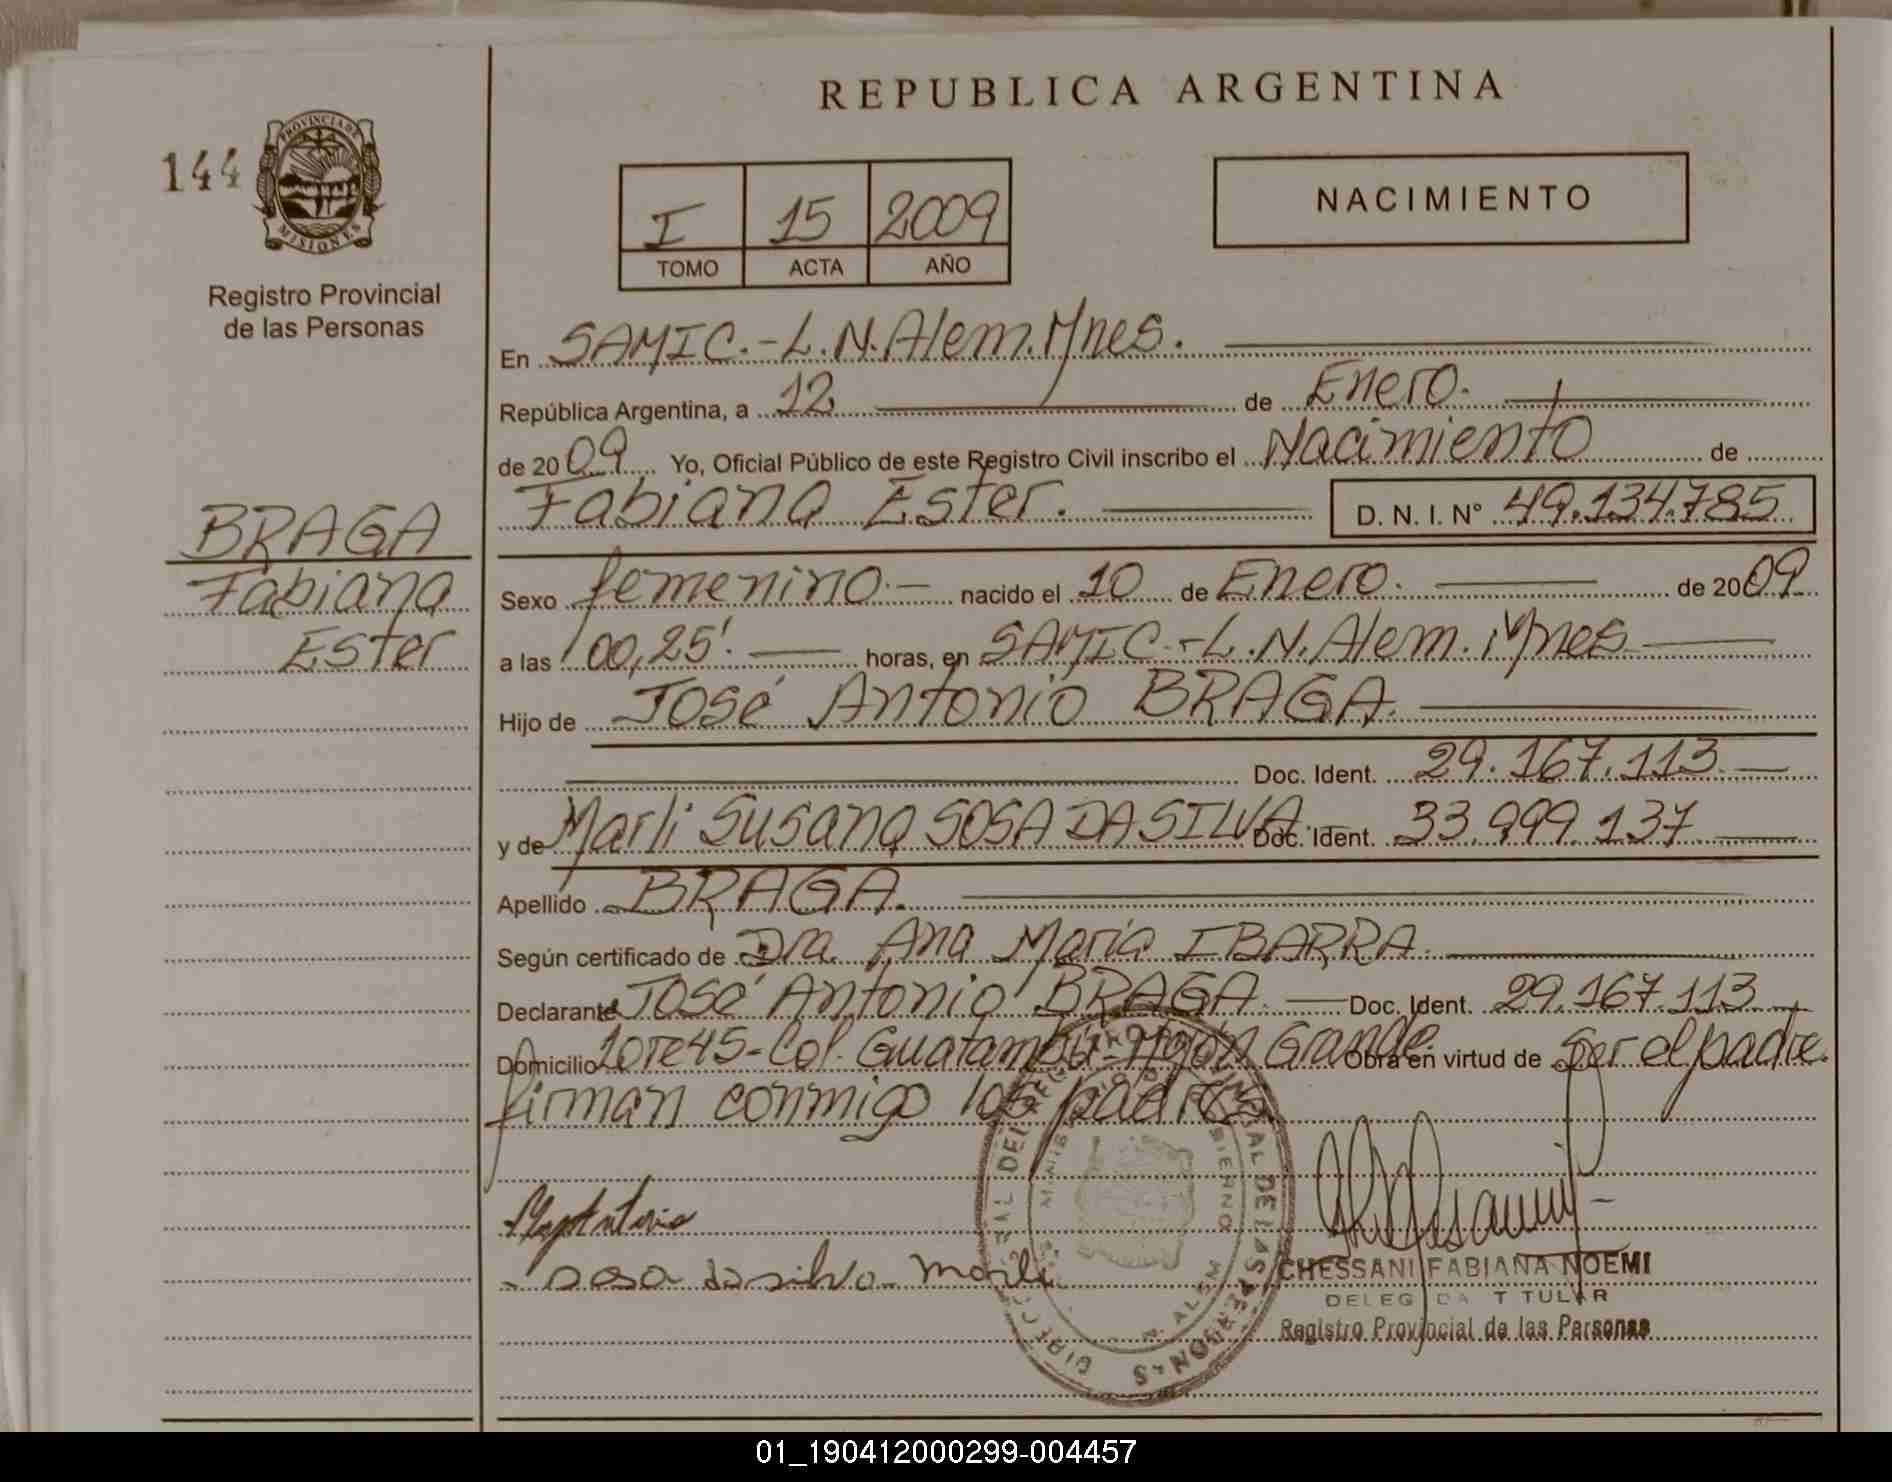 REPUBLICA ARGENTINA
144
PROVINCIA DE
MISIONES
Registro Provincial
de las Personas
I 15 2009
TOMO ACTA AÑO
NACIMIENTO
En SAMIC.-L.N.Alem.Mnes.
República Argentina, a 12 de Enero.
de 2009 Yo, Oficial Público de este Registro Civil inscribo el Nacimiento de
Fabiana Ester. D. N. I. N° 49.134.785
BRAGA
Fabiana
Ester
Sexo femenino.- nacido el 10 de Enero. de 2009
a las 00,25'. horas, en SAMIC.-L.N.Alem.Mnes
Hijo de José Antonio BRAGA.
Doc. Ident. 29.167.113
y de Marli Susana SOSA DA SILVA Doc. Ident. 33.999.137
Apellido BRAGA.
Según certificado de Dra. Ana María IBARRA.
Declarante José Antonio BRAGA. Doc. Ident. 29.167.113
Domicilio Lote 45-Col. Guatambú-Mjón Grande Obra en virtud de ser el padre.
firman conmigo los padres
sosa da silva marli
CHESSANI FABIANA NOEMI
DELEGADA TITULAR
Registro Provincial de las Personas
01_190412000299-004457